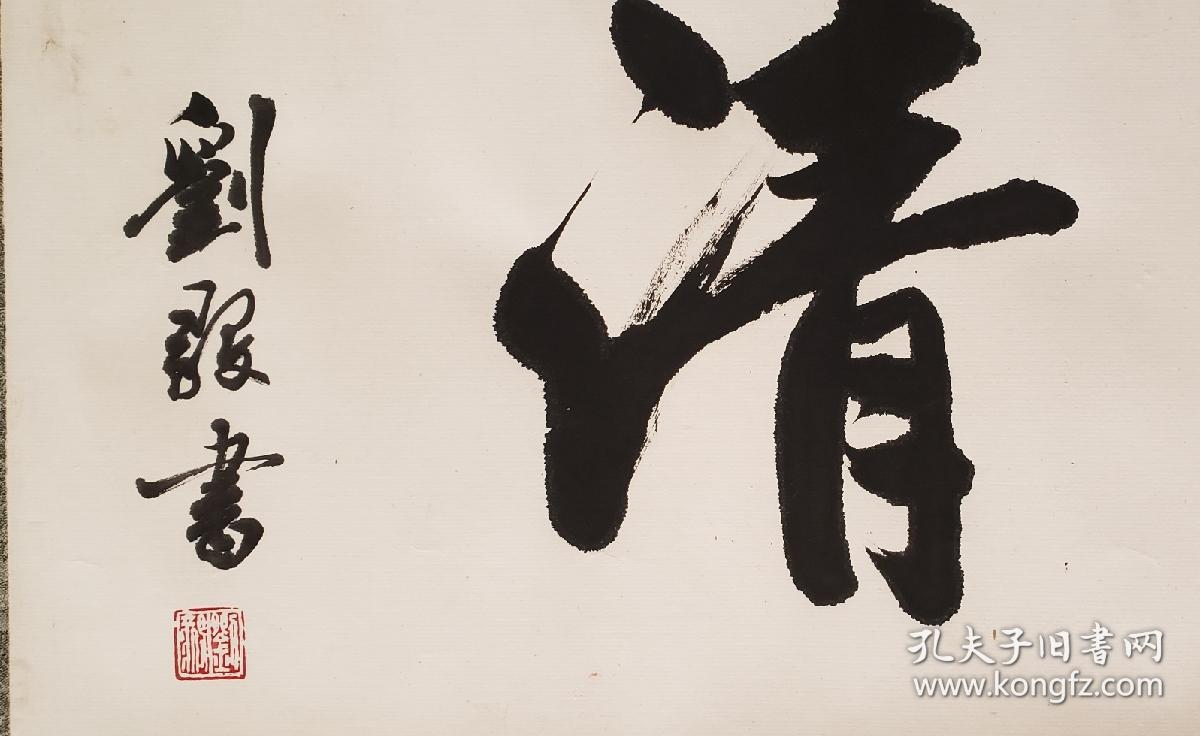 清
劉書
孔夫子旧书网
www.kongfz.com